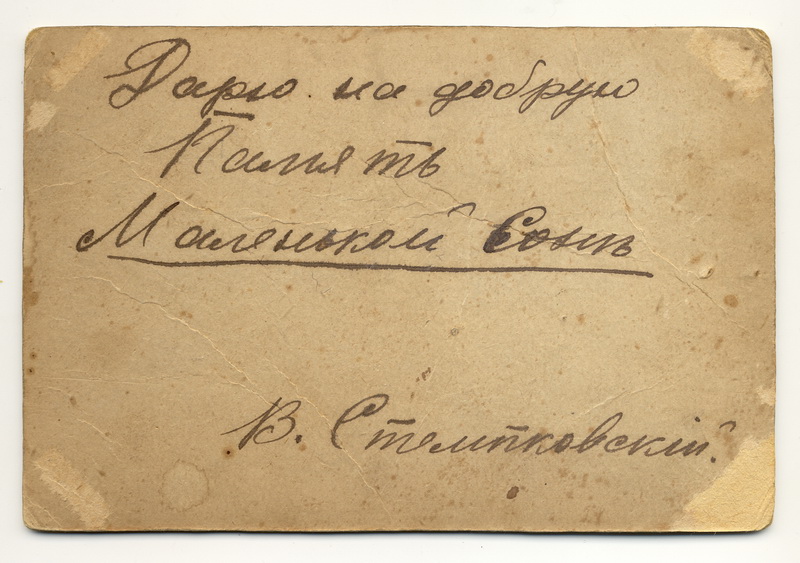 Дарю на добрую
Память
Маленькой Сонѣ
В. Стемпковскій.